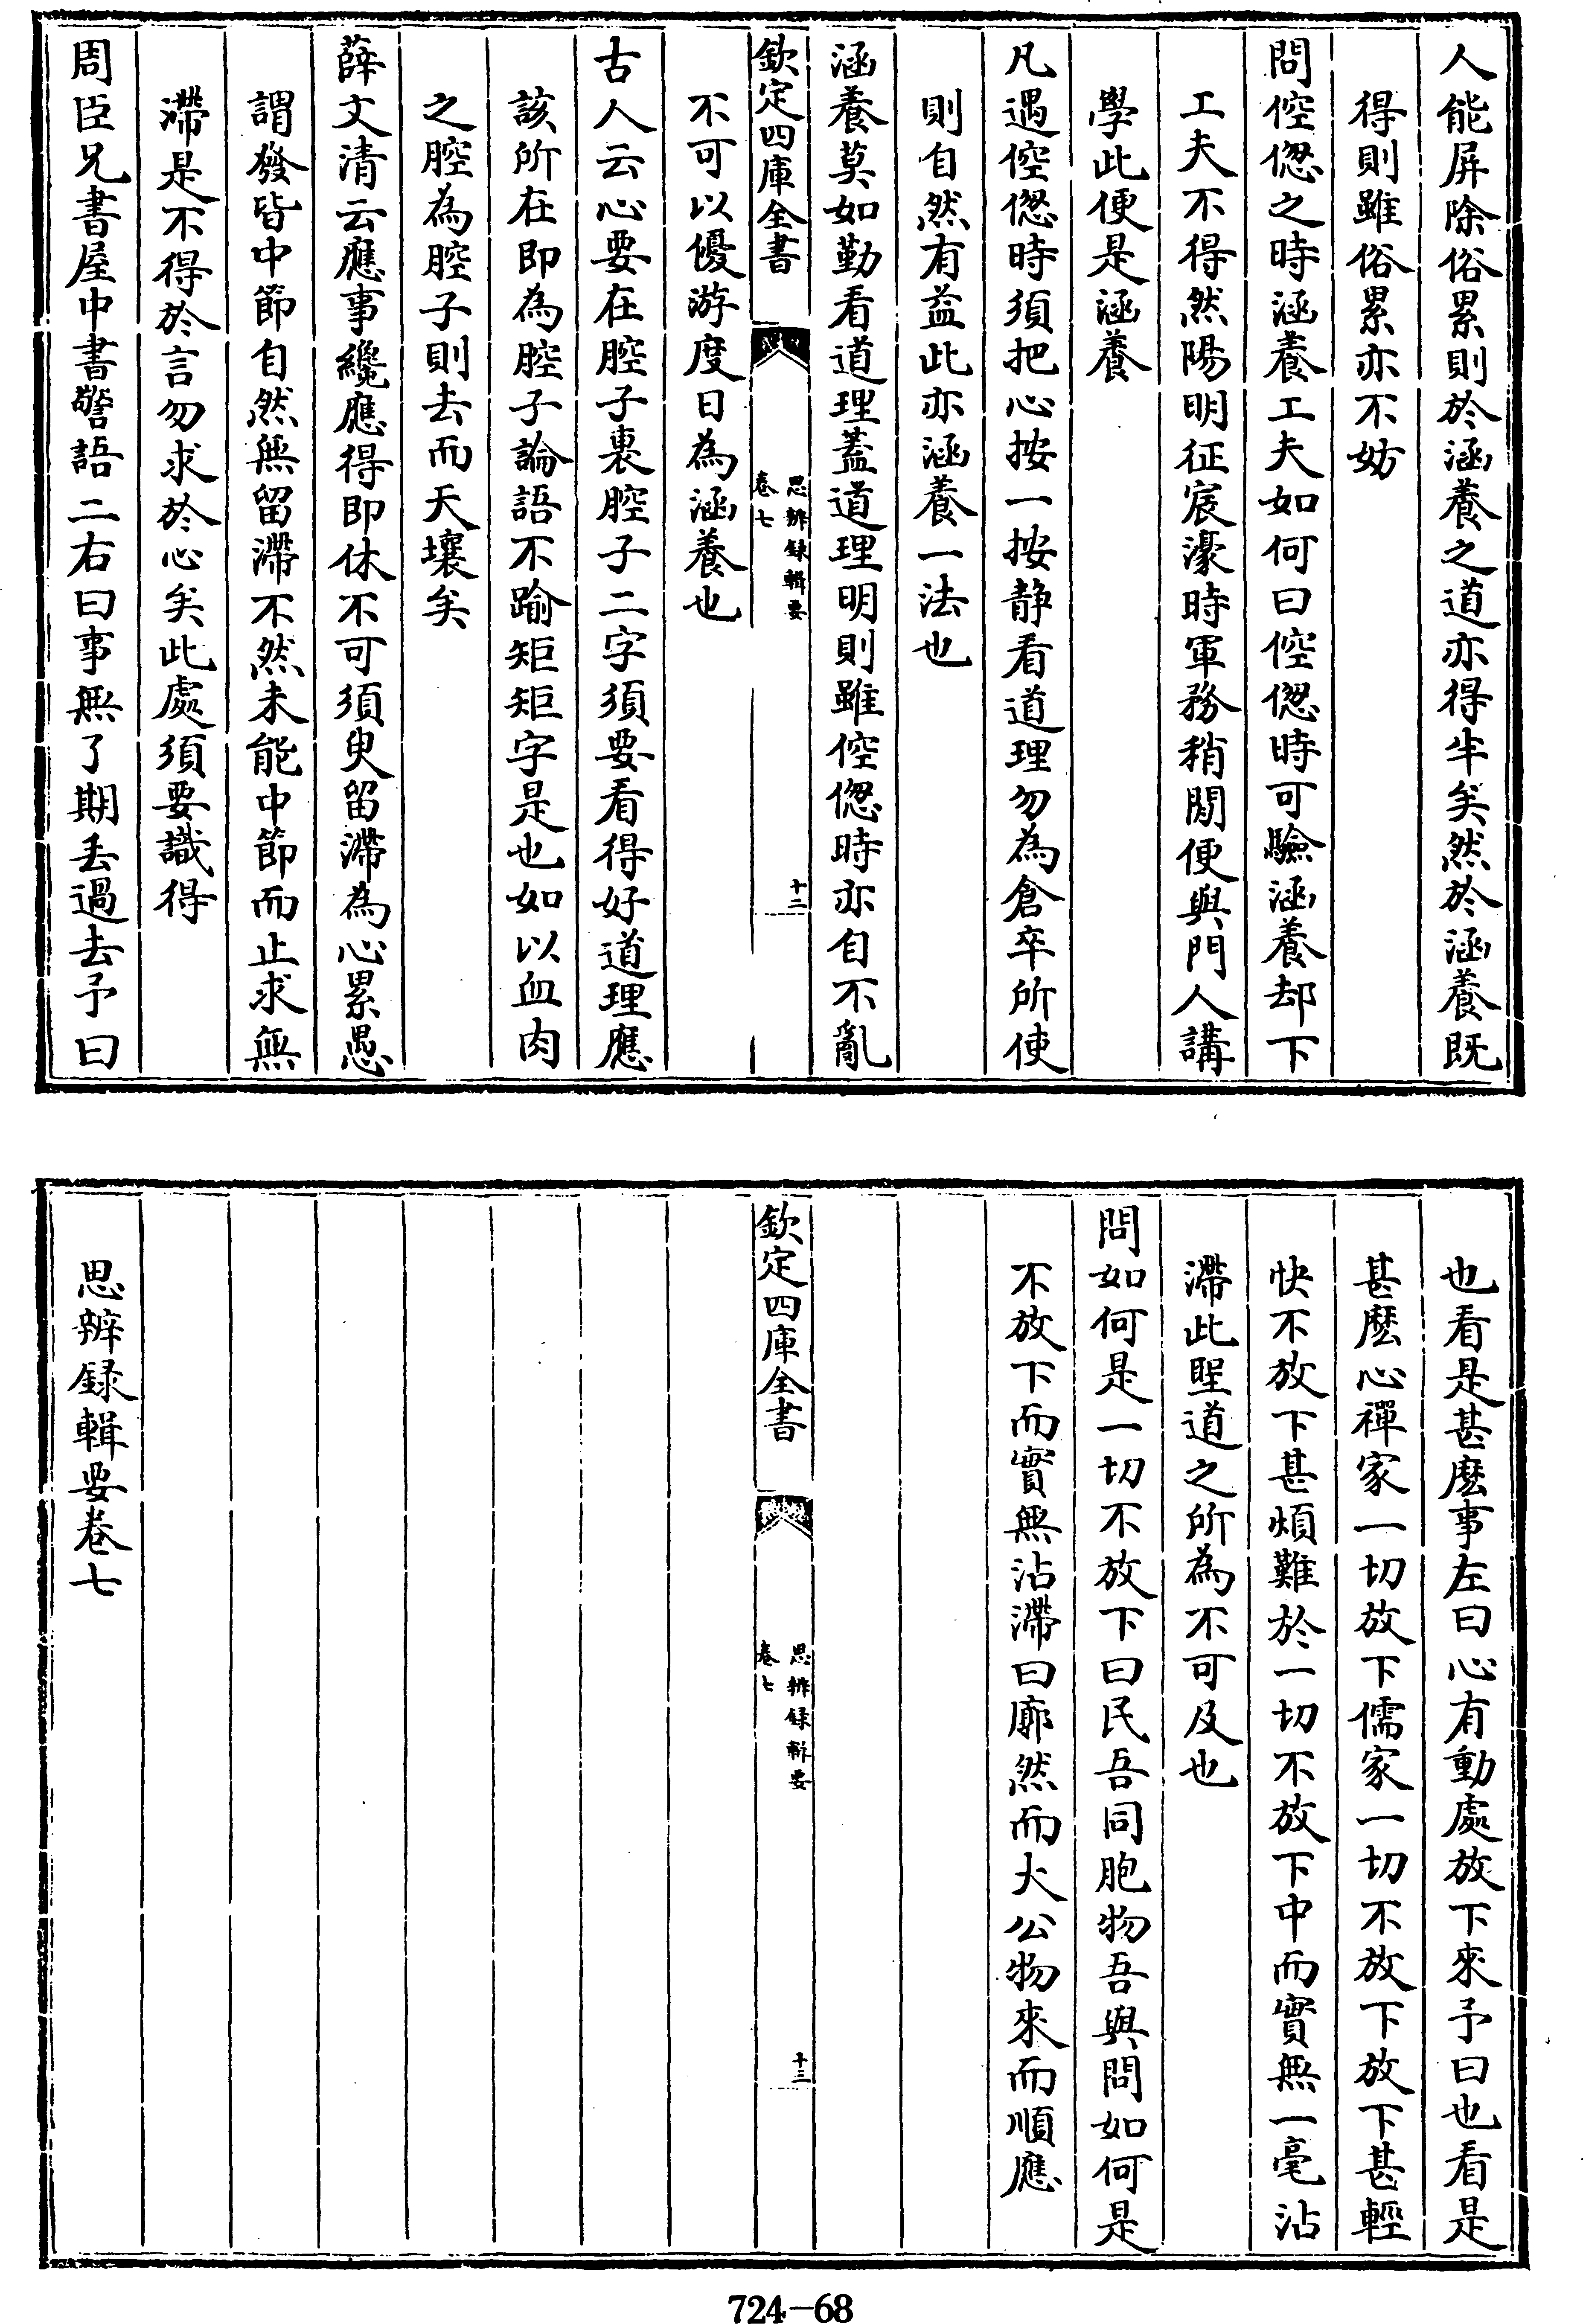 人能屏除俗累則於涵養之道亦得半矣然於涵養既
得則雖俗累亦不妨
問倥傯之時涵養工夫如何曰倥傯時可驗涵養却下
工夫不得然陽明征宸濠時軍務稍閒便與門人講
學此便是涵養
凡遇倥傯時須把心按一按静看道理勿為倉卒所使
則自然有益此亦涵養一法也
涵養莫如勤看道理蓋道理明則雖倥傯時亦自不亂
欽定四庫全書
思辨録輯要
卷七
十二
不可以優游度日為涵養也
古人云心要在腔子裏腔子二字須要看得好道理應
該所在即為腔子論語不踰矩矩字是也如以血肉
之腔為腔子則去而天壤矣
薛文清云應事纔應得即休不可須臾留滯為心累愚
謂發皆中節自然無留滯不然未能中節而止求無
滯是不得於言勿求於心矣此處須要識得
周臣兄書屋中書警語二右曰事無了期丢過去予曰
也看是甚麽事左曰心有動處放下來予曰也看是
甚麽心禪家一切放下儒家一切不放下放下甚輕
快不放下甚煩難於一切不放下中而實無一毫沾
滯此聖道之所為不可及也
問如何是一切不放下曰民吾同胞物吾與問如何是
不放下而實無沾滯曰廓然而大公物來而順應
欽定四庫全書
思辨録輯要
卷七
十三
思辨録輯要卷七
724-68